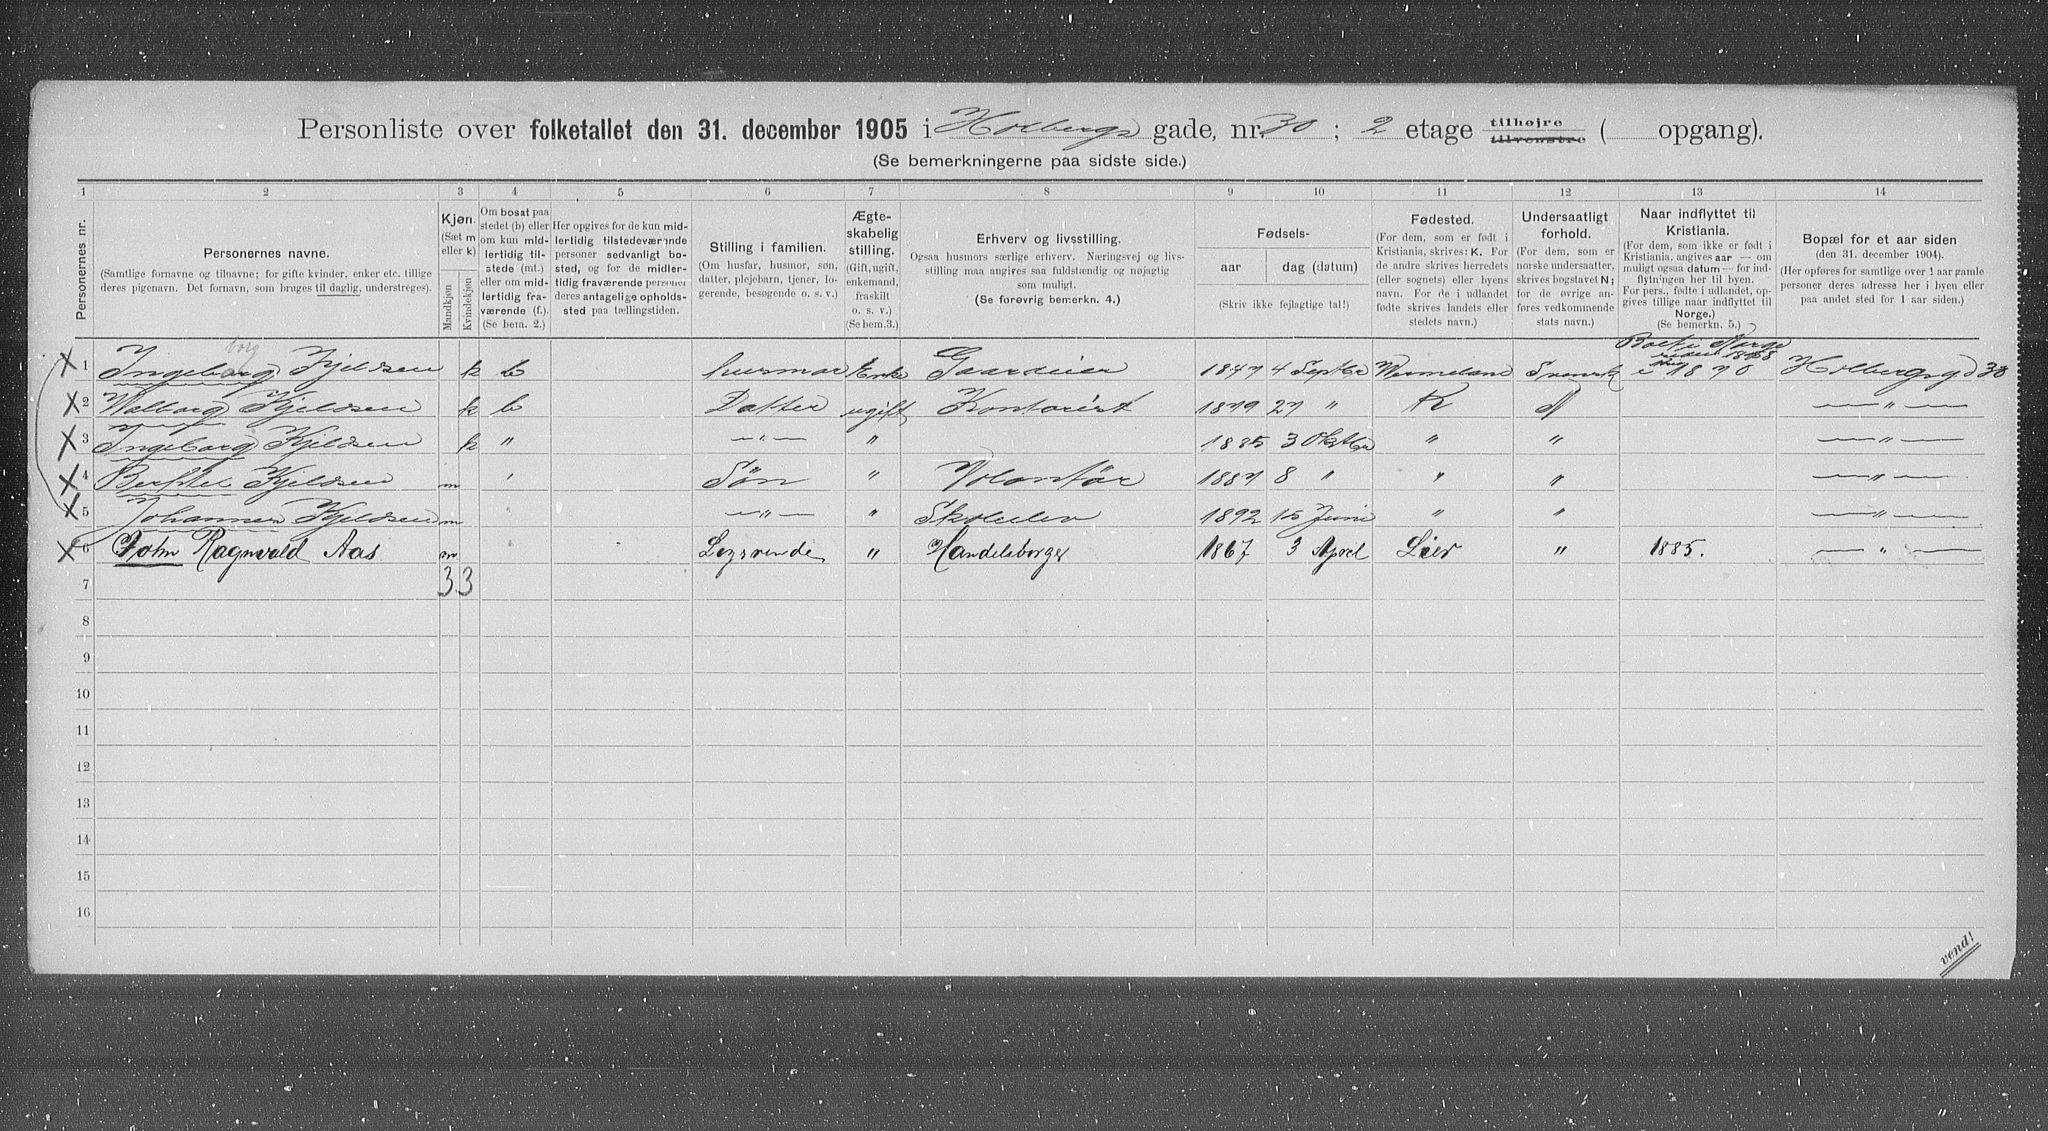 Personliste over folketallet den 31. december 1905 i Holbergs gade, nr. 30 ; 2 etage tilhøjre tilvenstre ( opgang).
(Se bemerkningerne paa sidste side.)
1 2 3 4 5 6 7 8 9 10 11 12 13 14
Personernes nr.
Personernes navne.
(Samtlige fornavne og tilnavne; for gifte kvinder, enker etc. tillige
deres pigenavn. Det fornavn, som bruges til daglig, understreges).
Kjøn.
(Sæt m
eller k)
Mandkjøn
Kvindekjøn
Om bosat paa
stedet (b) eller
om kun mid-
lertidig til-
stede (mt.)
eller om mid-
lertidig fra-
værende (f.).
(Se bem. 2.)
Her opgives for de kun mid-
lertidig tilstedeværende
personer sedvanligt bo-
sted, og for de midler-
tidig fraværende personer
deres antagelige opholds-
sted paa tællingstiden.
Stilling i familien.
(Om husfar, husmor, søn,
datter, plejebarn, tjener, lo-
gerende, besøgende o. s. v.)
Ægte-
skabelig
stilling.
(Gift, ugift,
enkemand,
fraskilt
o. s. v.)
(Se bem.3.)
Erhverv og livsstilling.
Ogsaa husmors særlige erhverv. Næringsvej og livs-
stilling maa angives saa fuldstændig og nøjagtig
som muligt.
(Se forøvrig bemerkn. 4.)
Fødsels-
aar
dag (datum)
(Skriv ikke fejlagtige tal!)
Fødested.
(For dem, som er født i
Kristiania, skrives: K. For
de andre skrives herredets
(eller sognets) eller byens
navn. For de i udlandet
fødte skrives landets eller
stedets navn.)
Undersaatligt
forhold.
(For dem, som er
norske undersaatter,
skrives bogstavet N;
for de øvrige an-
føres vedkommende
stats navn.)
Naar indflyttet til
Kristiania.
(For dem, som ikke er født i
Kristiania, angives aar — om
muligt ogsaa datum — for ind-
flytningen her til byen.
For pers., fødte i udlandet, op-
gives tillige naar indflyttet til
Norge.)
(Se bemerkn. 5.)
Bopæl for et aar siden
(den 31. december 1904).
(Her opføres for samtlige over 1 aar gamle
personer deres adresse her i byen eller
paa andet sted for 1 aar siden.)
borg
Norge
1868
X 1 Ingeborg Kjeldsen k b husmor Enke Gaardeier 1847 4 Septbr Wermeland Svensk i 1870 Holbergsgd 30
X 2 Walborg Kjeldsen k b Datter ugift Kontorist 1879 27 " K N — " —
X 3 Ingeborg Kjeldsen k " — " — " 1885 3 Oktbr " " — " —
X 4 Berthel Kjeldsen m ' Søn " Volontør 1887 8 " " " — " —
X 5 Johannes Kjeldsen m — " — " Skoleelev 1892 15 Juni " " — " —
X 6 John Ragnvald Aas m Logerende " Handelsborger 1867 3 April Lier " 1885. — " —
7 3 3
8
9
10
11
12
13
14
15
16
vend!